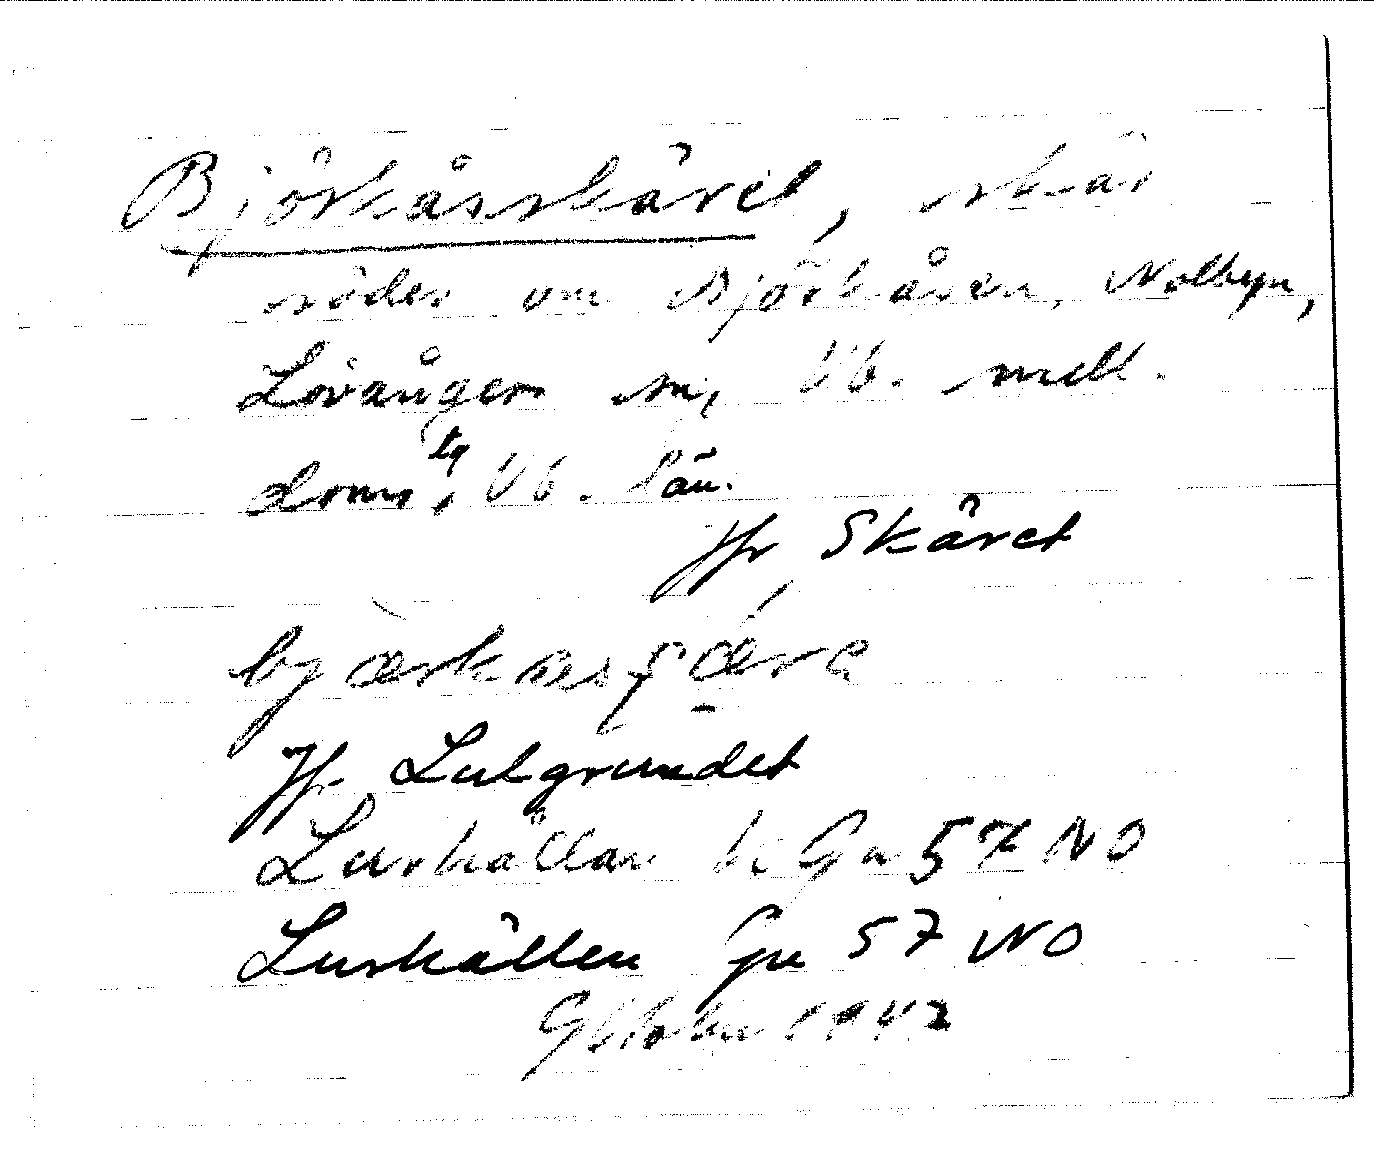 Björkåsskäret, skär
söder om Björkåsen, Nolbyn,
Lövångers sn, Vb. mell.
doms tg, Vb. län.
Jfr Skäret
Jfr Lulgrundet
Lurkällan Gu 57 NO
Lurkällen Gu 57 NO
1942